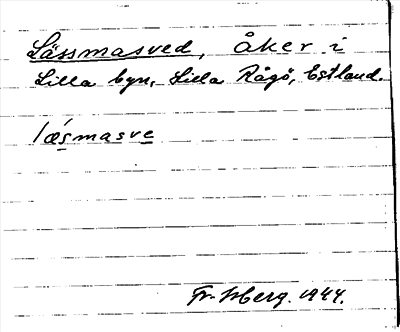 Lässmasved, åker i
Lilla byn, Lilla Rågö, Estland.
lǽsmasve
1944.